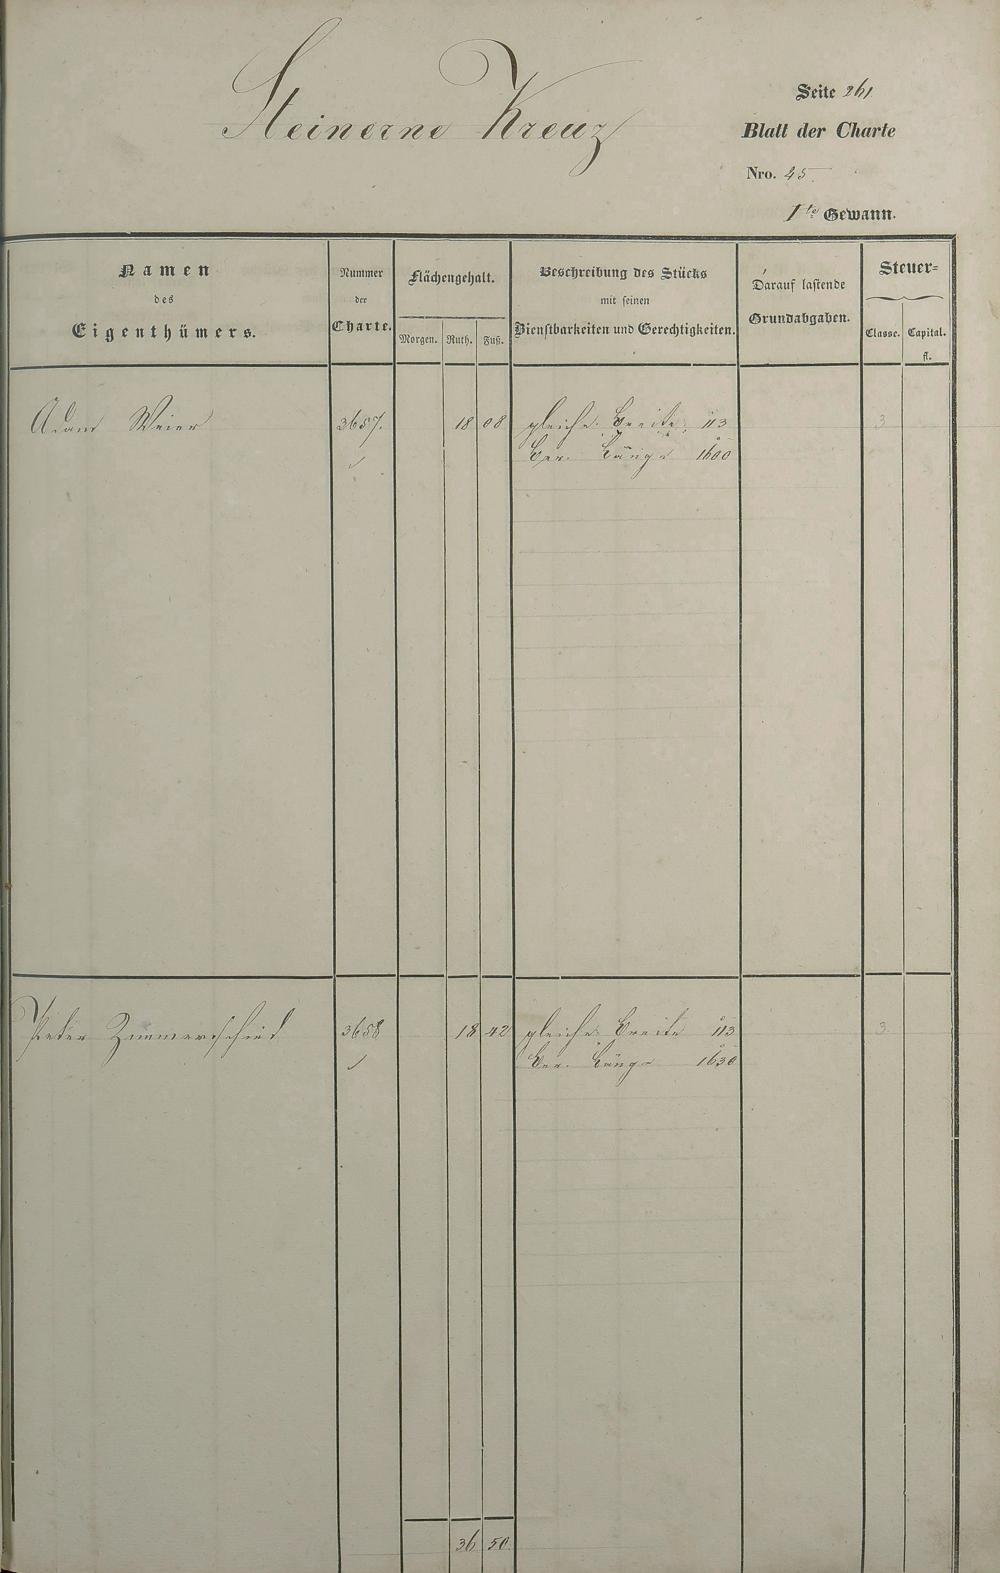 Steinerne Kreuz
Seite 261
Blatt der Charte
Nro. 45.
1te Gewann.
Namen
des
Eigenthümers.
Nummer
der
Charte.
Flächengehalt.
Morgen. Ruth. Fuß.
Beschreibung des Stücks
mit seinen
Dienstbarkeiten und Gerechtigkeiten.
Darauf lastende
Grundabgaben.
Steuer=
Classe. Capital.
fl.
Adam Weier 3657. 18 08 gleiche Breite 113 3
Ber. Länge 1600
Peter Zimmerschied 3658 18 42 gleiche Breite 113 3
Ber. Länge 1630
36 50